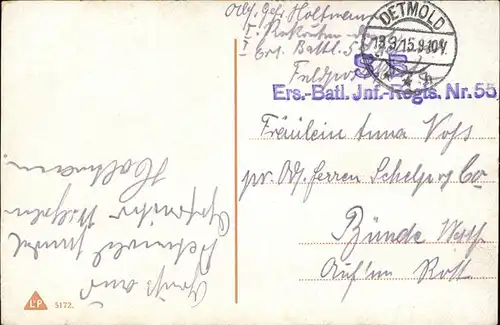 Abs. Gefr. Holtmann
I. Rekruten
I Ers. Battl. 55
Feldpost
DETMOLD
13.9.15.9-10V.
S.B.
Ers.-Batl. Jnf.-Regts. Nr. 55
Fräulein Anna Voß
pr. Adr. Herren Schelp & Co
Bünde Westf
Auf'm Rott
Gruß aus
Detmold sendet
Gefreiter Wilhelm
Holtmann.
L&P
5172.